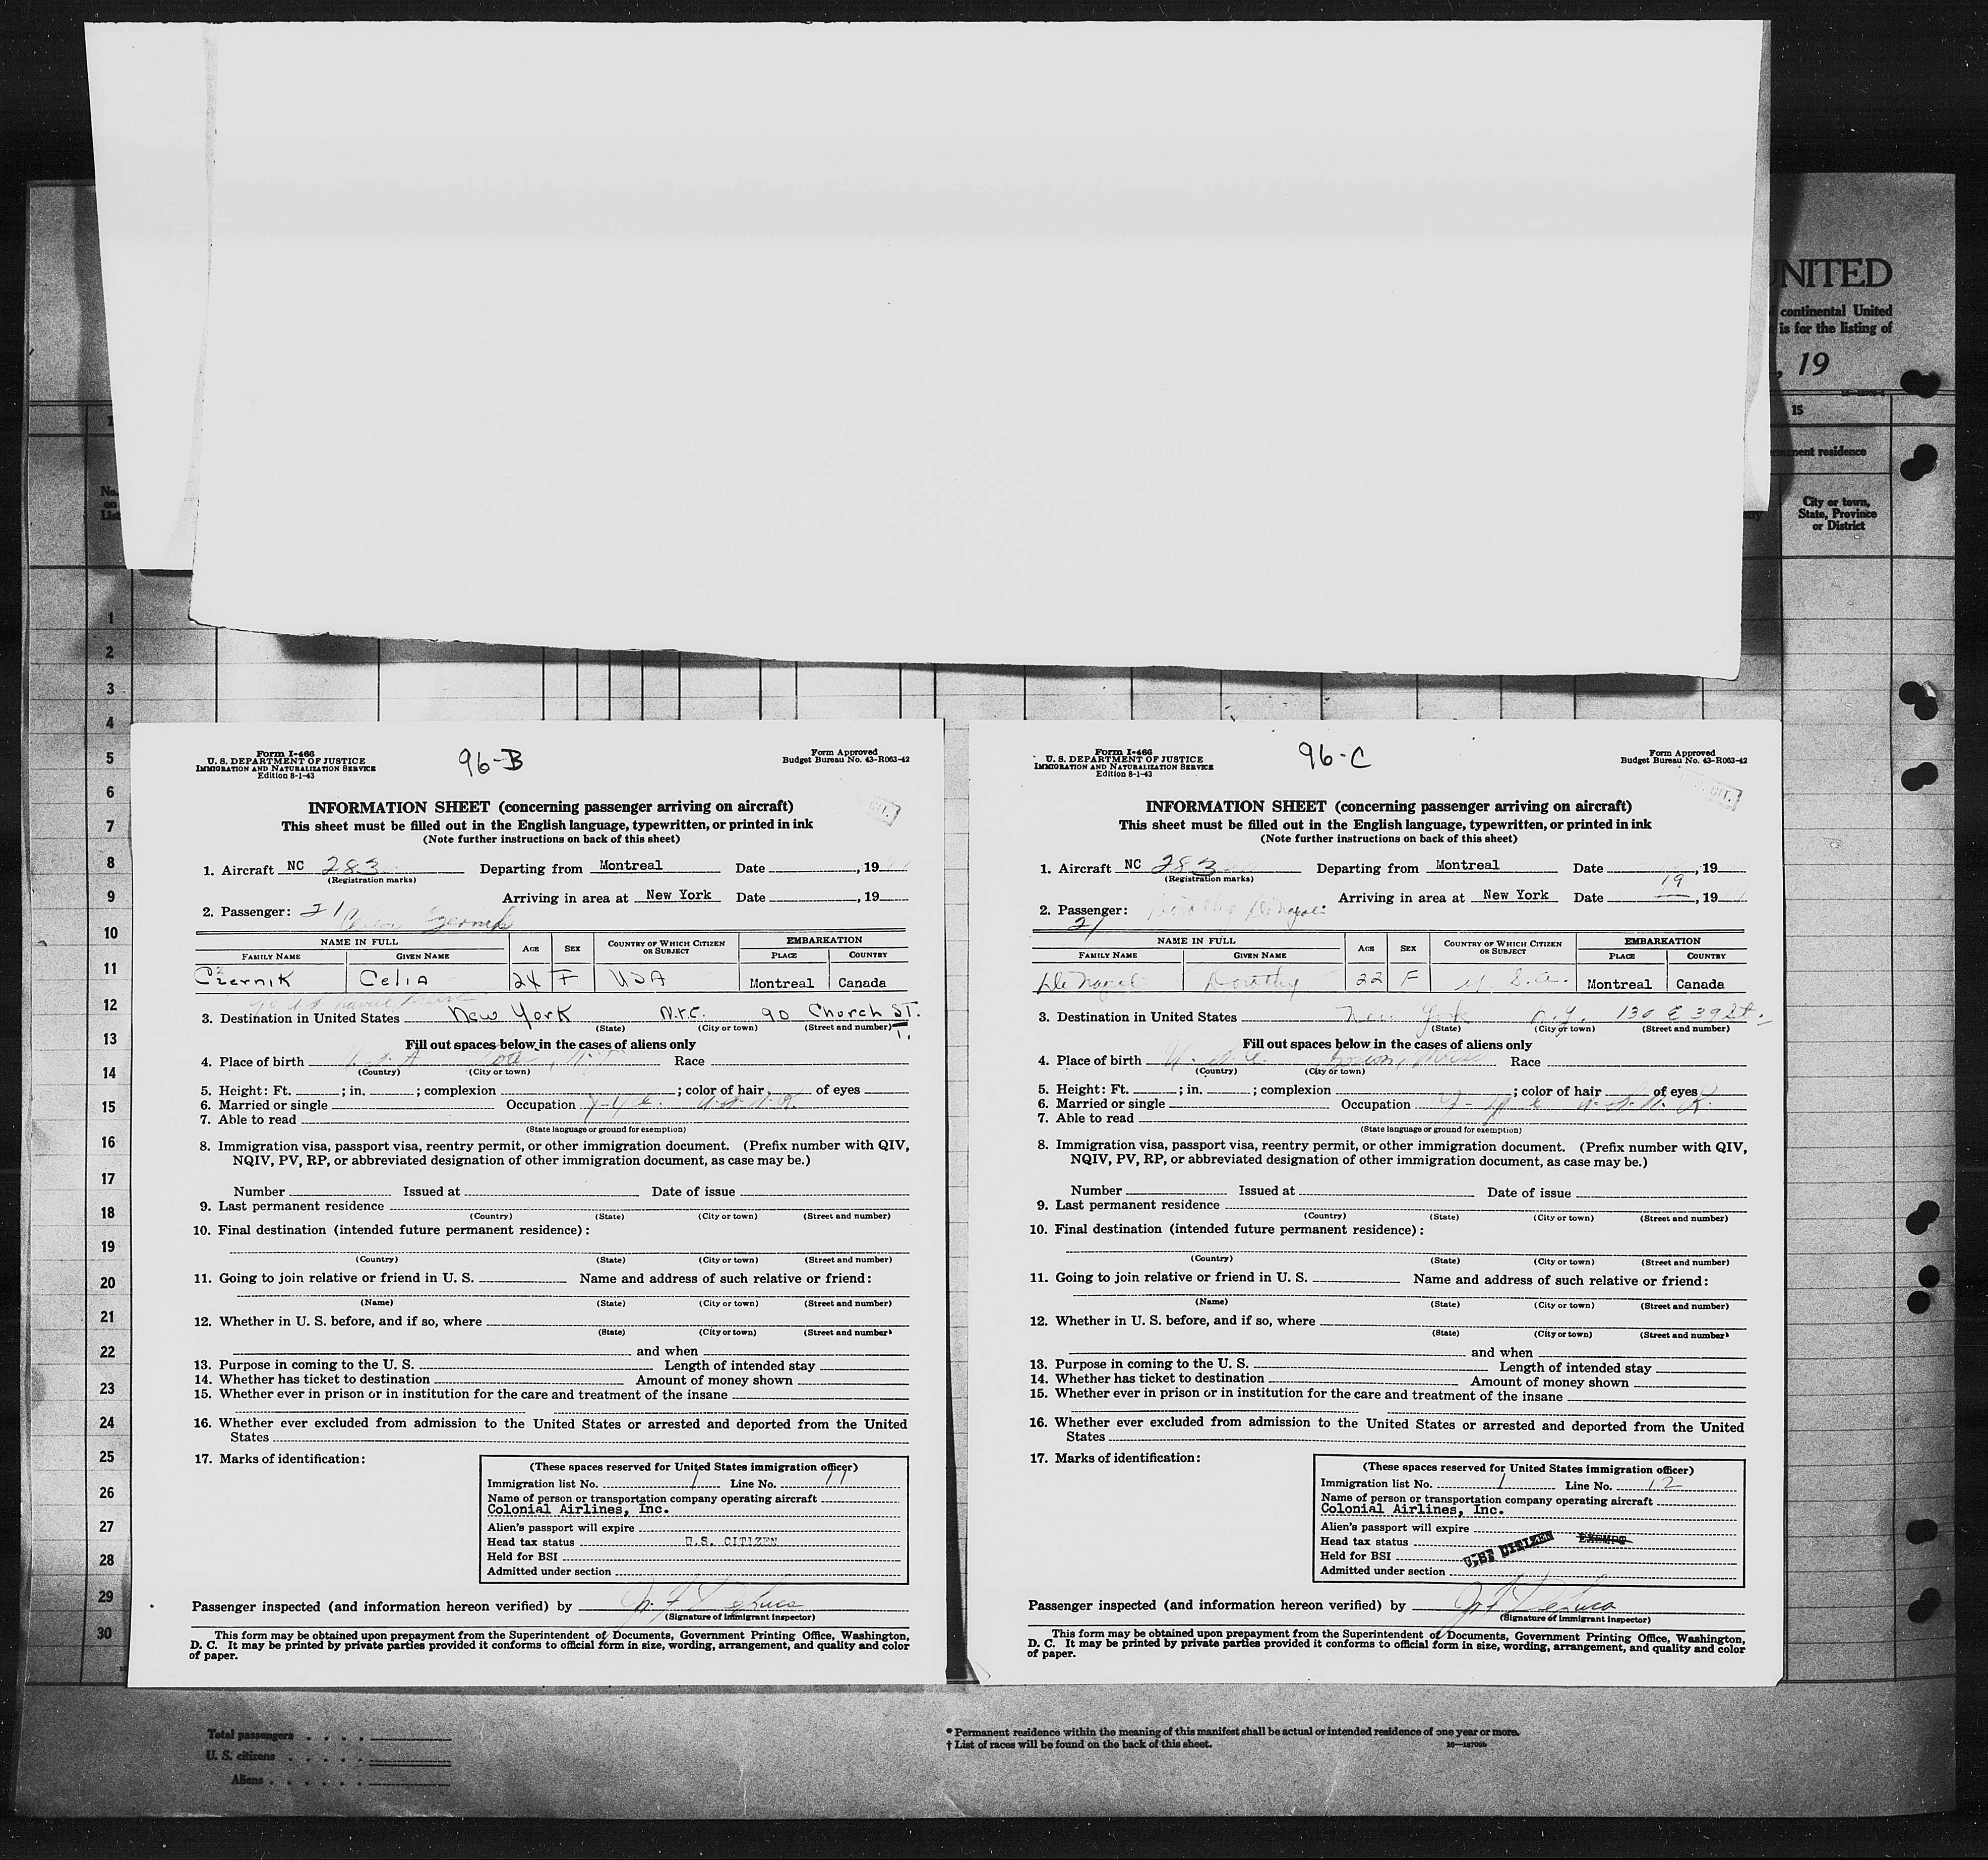 UNITED
continental United
is for the listing of
, 19
15
residence
City or town,
State, Province
or District
No.
on
List
1
2
3
4
5
6
7
8
9
10
11
12
13
14
15
16
17
18
19
20
21
22
23
24
25
26
27
28
29
30
Form I-466
U. S. DEPARTMENT OF JUSTICE
IMMIGRATION AND NATURALIZATION SERVICE
Edition 8-1-43
96-B
Form Approved
Budget Bureau No. 43-R063-42
CIT.
INFORMATION SHEET (concerning passenger arriving on aircraft)
This sheet must be filled out in the English language, typewritten, or printed in ink
(Note further instructions on back of this sheet)
1. Aircraft NC 283 Departing from Montreal Date , 19
(Registration marks)
Arriving in area at New York Date , 19
2. Passenger: 21
NAME IN FULL AGE SEX COUNTRY OF WHICH CITIZEN OR SUBJECT EMBARKATION
FAMILY NAME GIVEN NAME PLACE COUNTRY
Czernik Celia 24 F USA Montreal Canada
3. Destination in United States New York N.Y.C. 90 Church ST.
(State) (City or town) (Street and number)
Fill out spaces below in the cases of aliens only
4. Place of birth Race
(Country) (City or town)
5. Height: Ft. ; in. ; complexion ; color of hair of eyes
6. Married or single Occupation
7. Able to read
(State language or ground for exemption)
8. Immigration visa, passport visa, reentry permit, or other immigration document. (Prefix number with QIV,
NQIV, PV, RP, or abbreviated designation of other immigration document, as case may be.)
Number Issued at Date of issue
9. Last permanent residence
(Country) (State) (City or town) (Street and number)
10. Final destination (intended future permanent residence):
(Country) (State) (City or town) (Street and number)
11. Going to join relative or friend in U. S. Name and address of such relative or friend:
(Name) (State) (City or town) (Street and number)
12. Whether in U. S. before, and if so, where
(State) (City or town) (Street and number)
and when
13. Purpose in coming to the U. S. Length of intended stay
14. Whether has ticket to destination Amount of money shown
15. Whether ever in prison or in institution for the care and treatment of the insane
16. Whether ever excluded from admission to the United States or arrested and deported from the United
States
17. Marks of identification:
(These spaces reserved for United States immigration officer)
Immigration list No. 1 Line No. 11
Name of person or transportation company operating aircraft
Colonial Airlines, Inc.
Alien's passport will expire
Head tax status U.S. CITIZEN
Held for BSI
Admitted under section
Passenger inspected (and information hereon verified) by
(Signature of immigrant inspector)
This form may be obtained upon prepayment from the Superintendent of Documents, Government Printing Office, Washington,
D. C. It may be printed by private parties provided it conforms to official form in size, wording, arrangement, and quality and color
of paper.
Form I-466
U. S. DEPARTMENT OF JUSTICE
IMMIGRATION AND NATURALIZATION SERVICE
Edition 8-1-43
96-C
Form Approved
Budget Bureau No. 43-R063-42
CIT.
INFORMATION SHEET (concerning passenger arriving on aircraft)
This sheet must be filled out in the English language, typewritten, or printed in ink
(Note further instructions on back of this sheet)
1. Aircraft NC 283 Departing from Montreal Date , 19
(Registration marks)
Arriving in area at New York Date 19 , 19
2. Passenger: Dorothy
21
NAME IN FULL AGE SEX COUNTRY OF WHICH CITIZEN OR SUBJECT EMBARKATION
FAMILY NAME GIVEN NAME PLACE COUNTRY
Dorothy 22 F U. S. A. Montreal Canada
3. Destination in United States New York N.Y. 130 E 39 St.
(State) (City or town) (Street and number)
Fill out spaces below in the cases of aliens only
4. Place of birth Race
(Country) (City or town)
5. Height: Ft. ; in. ; complexion ; color of hair of eyes
6. Married or single Occupation
7. Able to read
(State language or ground for exemption)
8. Immigration visa, passport visa, reentry permit, or other immigration document. (Prefix number with QIV,
NQIV, PV, RP, or abbreviated designation of other immigration document, as case may be.)
Number Issued at Date of issue
9. Last permanent residence
(Country) (State) (City or town) (Street and number)
10. Final destination (intended future permanent residence):
(Country) (State) (City or town) (Street and number)
11. Going to join relative or friend in U. S. Name and address of such relative or friend:
(Name) (State) (City or town) (Street and number)
12. Whether in U. S. before, and if so, where
(State) (City or town) (Street and number)
and when
13. Purpose in coming to the U. S. Length of intended stay
14. Whether has ticket to destination Amount of money shown
15. Whether ever in prison or in institution for the care and treatment of the insane
16. Whether ever excluded from admission to the United States or arrested and deported from the United
States
17. Marks of identification:
(These spaces reserved for United States immigration officer)
Immigration list No. 1 Line No. 12
Name of person or transportation company operating aircraft
Colonial Airlines, Inc.
Alien's passport will expire
Head tax status EXEMPT
Held for BSI U.S. CITIZEN
Admitted under section
Passenger inspected (and information hereon verified) by
(Signature of immigrant inspector)
This form may be obtained upon prepayment from the Superintendent of Documents, Government Printing Office, Washington,
D. C. It may be printed by private parties provided it conforms to official form in size, wording, arrangement, and quality and color
of paper.
Total passengers
U. S. citizens
Aliens
* Permanent residence within the meaning of this manifest shall be actual or intended residence of one year or more.
† List of races will be found on the back of this sheet.